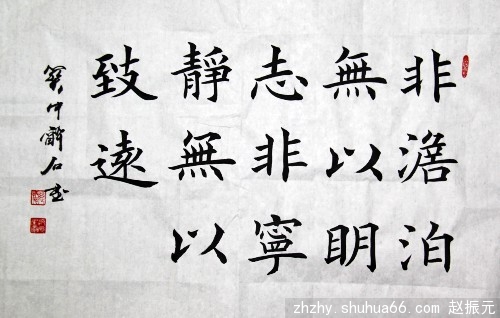 非澹泊
無以明
志非寧
靜無以
致遠
zhzhy.shuhua66.com 赵振元